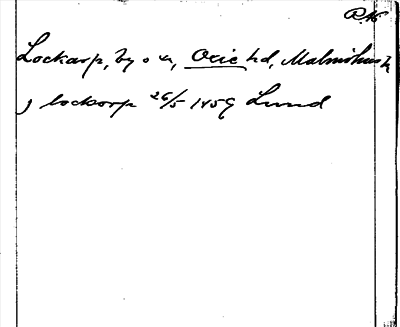 Lockarp, by o sn, Oxie hd, Malmöhus l
J lockorp 26/5 1459 Lund